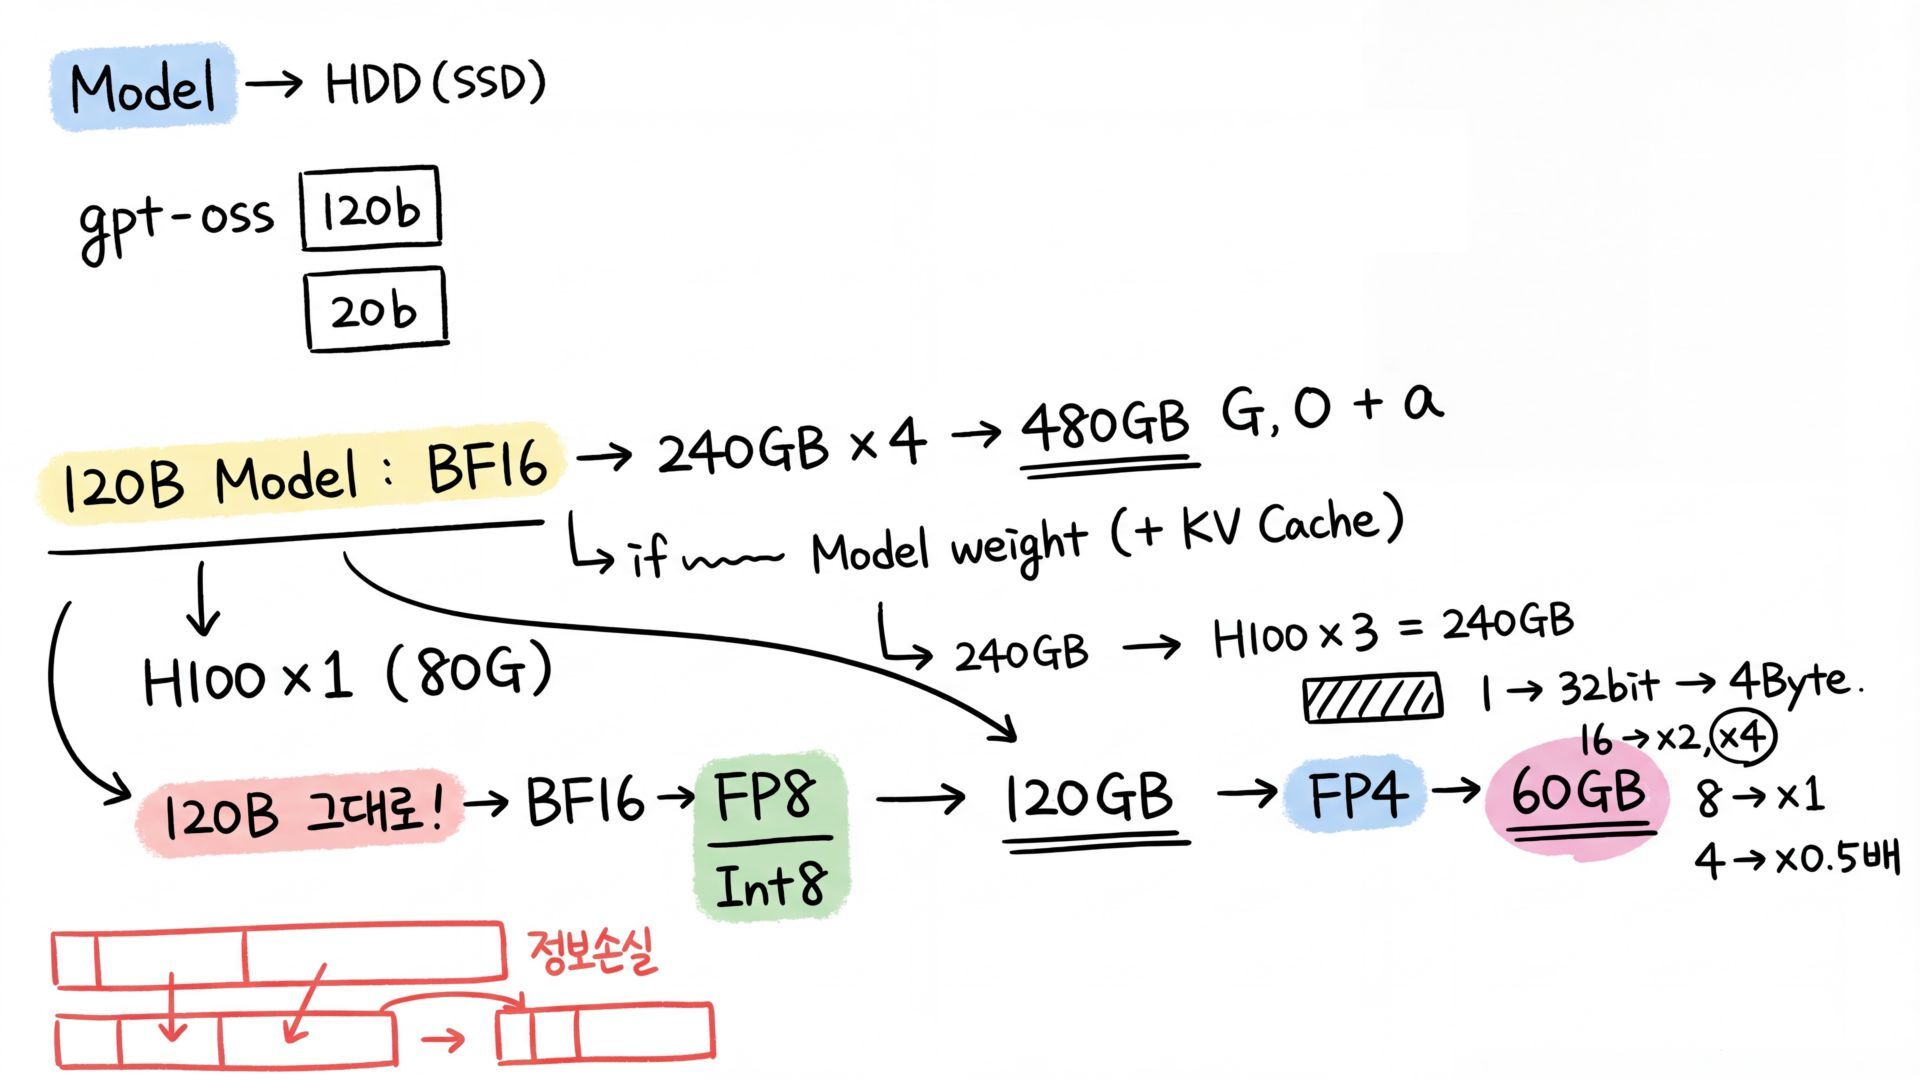 Model → HDD(SSD)
gpt-oss 120b
20b
120B Model : BF16 → 240GB × 4 → 480GB G, O + a
if Model weight (+ KV Cache)
240GB → H100 × 3 = 240GB
H100 × 1 (80G)
1 → 32bit → 4Byte.
16 → ×2, ×4
120B 그대로! → BF16 → FP8 → 120GB → FP4 → 60GB
Int8
8 → ×1
4 → ×0.5배
정보손실